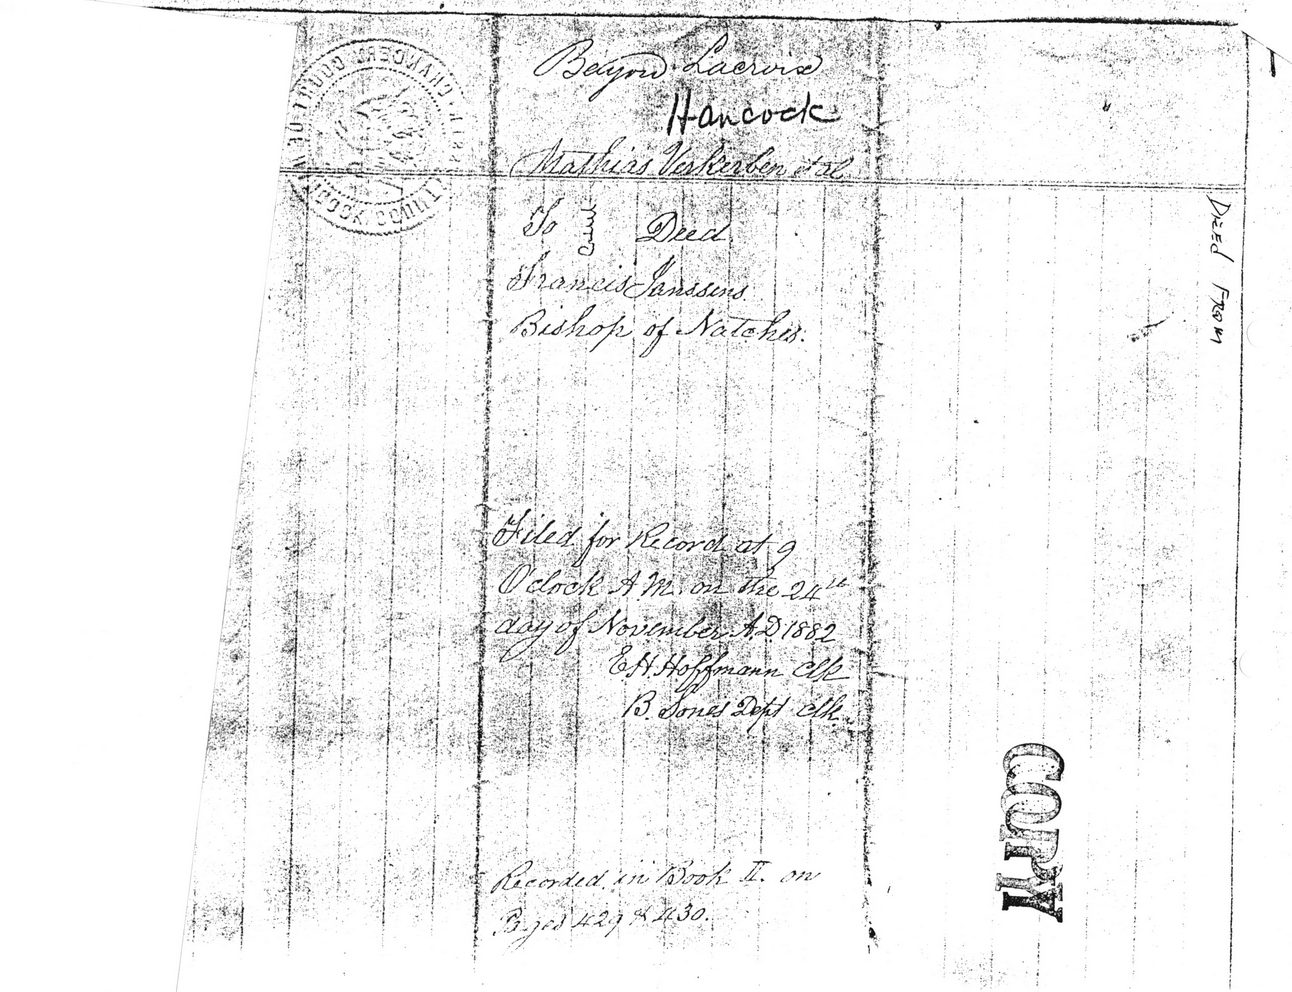 Bayou Lacroix
Hancock
Mathias Verkerben et al
To Deed
Francis Janssens
Bishop of Natches.
Filed for Record at 9
O'clock A.M. on the 24th
day of November A.D 1882
E.H. Hoffmann Clk
B. Jones Dept Clk.
Recorded in Book II. on
Pages 429 & 430.
DEED FROM
COPY
CHANCERY COURT
COCK COUNTY